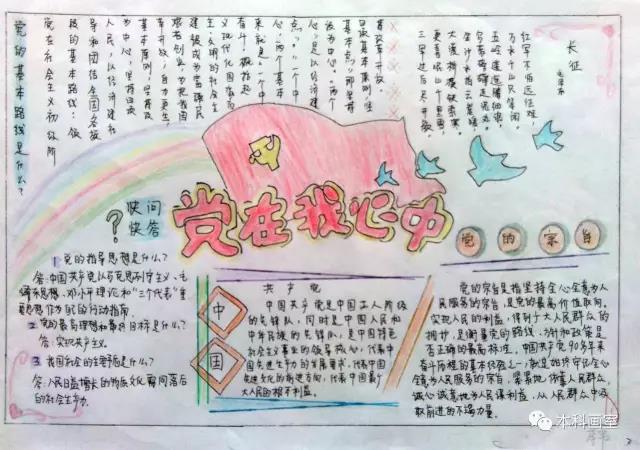 长征
毛泽东
红军不怕远征难，
万水千山只等闲。
五岭逶迤腾细浪，
乌蒙磅礴走泥丸。
金沙水拍云崖暖，
大渡桥横铁索寒。
更喜岷山千里雪，
三军过后尽开颜。
党的基本路线是什么？
党在社会主义初级阶
段的基本路线：领
导和团结全国各族
人民，以经济建设
为中心，坚持四项
基本原则，坚持改
革开放，自力更生，
艰苦创业，为把我国
建设成为富强民
主、文明的社会主
义现代化国家而
奋斗。概括起
来就是：“一个中
心，两个基本
点”。“一个中
心”是以经济建
设为中心。“两个
基本点”即坚持
四项基本原则，坚持
改革开放。
党在我心中
？快问
快答
党的宗旨
1 党的指导思想是什么？
答：中国共产党以马克思列宁主义、毛
泽东思想、邓小平理论和“三个代表”重
要思想作为我的行动指南。
2 党的最高理想和最终目标是什么？
答：实现共产主义。
3 我国社会的主要矛盾是什么？
答：人民日益增长的物质文化需同落后
的社会生产。
中
国
共产党
中国共产党是中国工人阶级
的先锋队，同时是中国人民和
中华民族的先锋队，是中国特色
社会主义事业的领导核心，代表中
国先进生产力的发展要求，代表中国
先进文化的前进方向，代表中国最广
大人民的根本利益。
党的宗旨是指坚持全心全意为人
民服务的宗旨，是党的最高价值取向。
实现人民的利益，得到广大人民群众的
拥护，是衡量党的路线、方针和政策是
否正确的最高标准。中国共产党90多年来
奋斗历程的基本经验之一，就是始终守住全心
全意为人民服务的宗旨，紧紧地依靠人民群众，
诚心诚意地为人民谋利益，从人民群众中汲
取前进的不竭力量。
本科画室